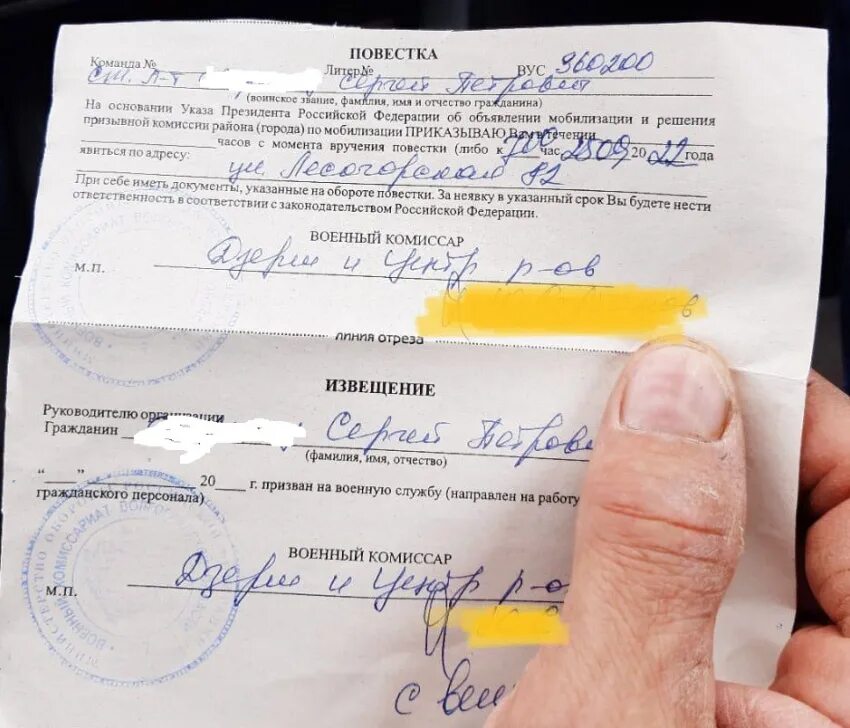 ПОВЕСТКА
Команда № Литер№ ВУС 960200
Ст. л-т Сергей Петрович
(воинское звание, фамилия, имя и отчество гражданина)
На основании Указа Президента Российской Федерации об объявлении мобилизации и решения
призывной комиссии района (города) по мобилизации ПРИКАЗЫВАЮ Вам в течении
часов с момента вручения повестки (либо к 700 час. 2509 2022 года
явиться по адресу: ул. Лесогорская 82
При себе иметь документы, указанные на обороте повестки. За неявку в указанный срок Вы будете нести
ответственность в соответствии с законодательством Российской Федерации.
ВОЕННЫЙ КОМИССАР
М.П. Дзерж и Центр р-ов
линия отреза
ИЗВЕЩЕНИЕ
Руководителю организации
Гражданин Сергей Петрови
(фамилия, имя, отчество)
“ ” 20 г. призван на военную службу (направлен на работу
гражданского персонала)
ВОЕННЫЙ КОМИССАР
М.П. Дзерж и Центр р-ов
с вещ